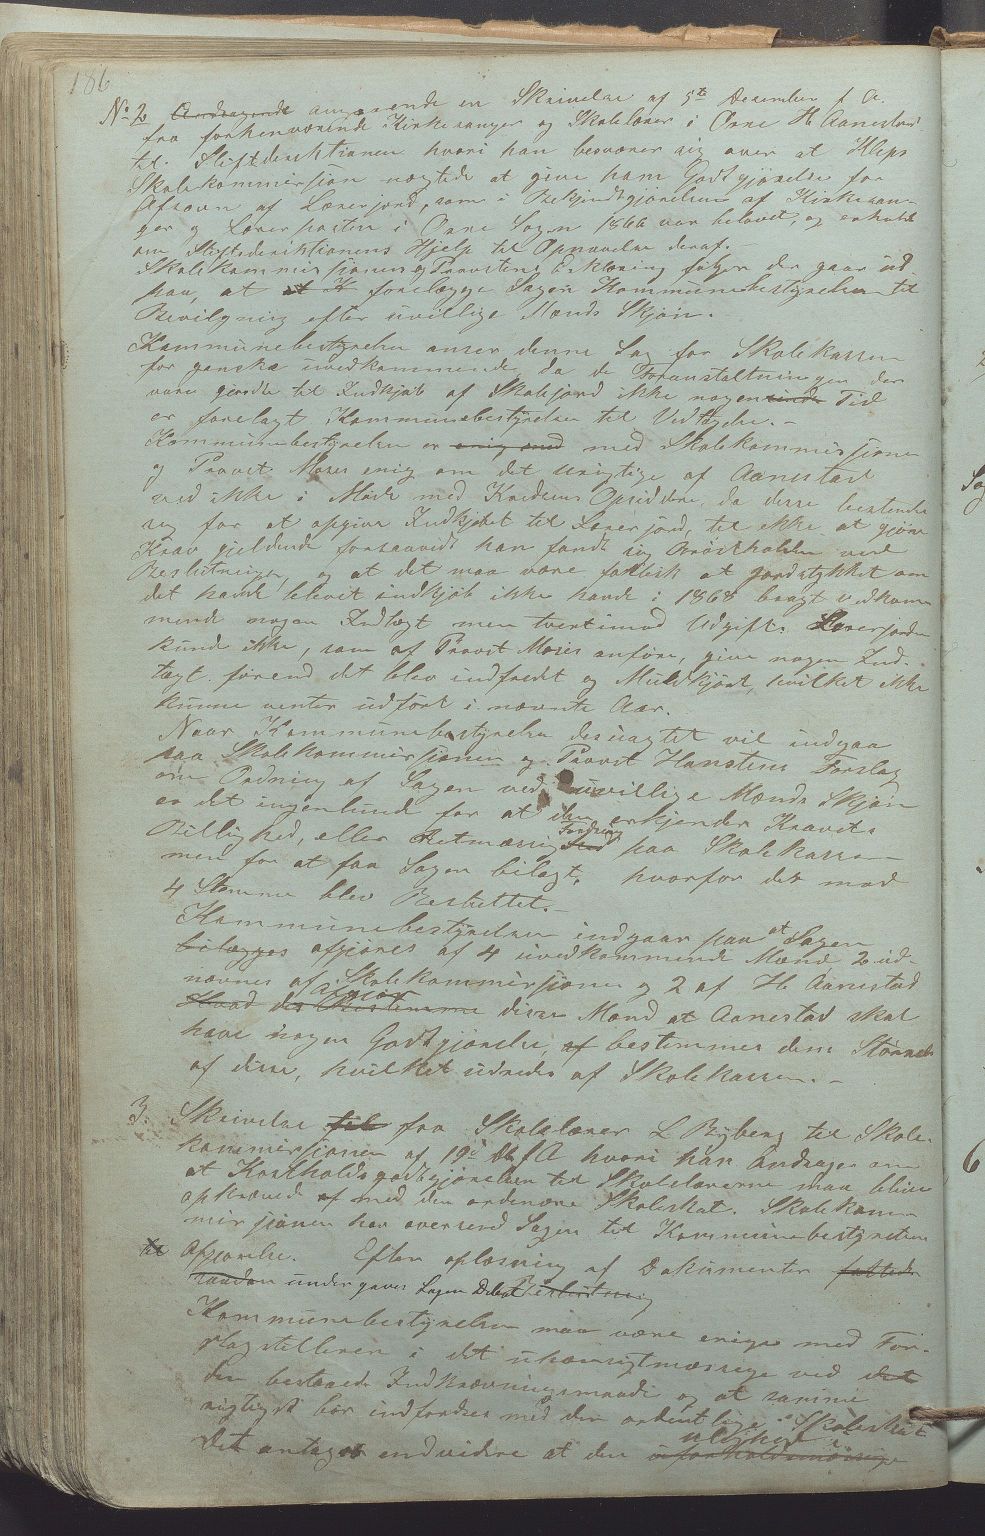 186
No 2 Andragende angaaende en Skrivelse af 5te Desember f. A.
fra forhenværende Kirkesanger og Skolelærer i Orre H. Aanestad
til Stiftdirektionen hvori han besværer sig over at Kleps
Skolekommission nægtede at give ham Godtgjørelse for
Afsavn af Lærerjord, som i Bekjendtgjørelsen af Kirkesan-
ger og Lærerposten i Orre Sogn 1866 var belovet, og erholdt
om Stiftsdirektionens Hjelp til Opnaaelse deraf.-
Skolekommissionens og Provstens Erklæring følger der gaar ud
paa, at at K forelægge Sagen Kommunebestyrelsen til
Bevilgning efter uvillige Mænds Skjøn.-
Kommunebestyrelsen anser denne Sag for Skolekassen
for ganske uvedkommende, da de Foranstaltninger der
vare gjordte til Indkjøb af Skolejord ikke nogensinde Tid
er forelagt Kommunebestyrelsen til Vedtagelse.-
Kommunebestyrelsen er enig med med Skolekommissionen
og Provst Moses enig om det urigtige af Aanestad
ved ikke i Møde med Kredsens Opsiddere, da disse bestemte
sig for at opgive Indkjøbet til Lærerjord, til ikke at gjøre
Krav gjeldende forsaavidt han fandt sig brøstholden ved
Beslutningen, og at det maa være faktisk at Jordstykket om
det havde blevet indkjøbt ikke havde i 1868 bragt vedkom
mende nogen Indtægt men tvertimod Udgift. Lærerjorden
kunde ikke, som af Provst Moses anføre, give nogen Ind-
tægt. förend det blev indfredet og Muldkjört, hvilket ikke
kunne ventes udfört i nævnte Aar.
Naar Kommunebestyrelsen desuagtet vil indgaa
paa Skolekommissionen og Provst Hanstens Forslag
om Ordning af Sagen ved uvillige Mænds Skjøn
er det ingenlunde for at den erkjender Kravets
Billighed, eller Retmæssig Fordring paa Skolekassen
men for at faa Sagen bilagt. hvorfor det mod
4 Stemme blev Besluttet.-
Kommunebestyrelsen indgaar paa at Sagen
bilægges afgjöres af 4 uvedkommende Mænd 2 ud-
nævnes af Skolekommissionen og 2 af H. Aanestad
Hvad der Bestemme disse Mænd at Aanestad skal
have nogen Godtgjørelse, af bestemmes dens Størrelse
af disse, hvilket udredes af Skolekassen.-
3. Skrivelse til fra Skolelærer L Byberg til Skole-
kommissionen af 19de f A hvori han andrager om
at Kostholdsgodtgjørelsen til Skolelærerne maa blive
opkrævede af med den ordenære Skoleskat. Skolekom-
missionen har oversend Sagen til Kommunebestyrelsen
til Afgjørelse. Efter oplæsning af Dokumenter fattedes
saadan undergaves Sagen Debat Beslutning
Kommunebestyrelsen maa være enige med For-
slagstilleren i det uhensigtmæssige ved det
den bestaaede Indkrævningsmaade og at samme
rigtigst bør indfordres med den ordentlige Skoleskat
Det antages endvidere at den ulighed i uforholdsmæssige